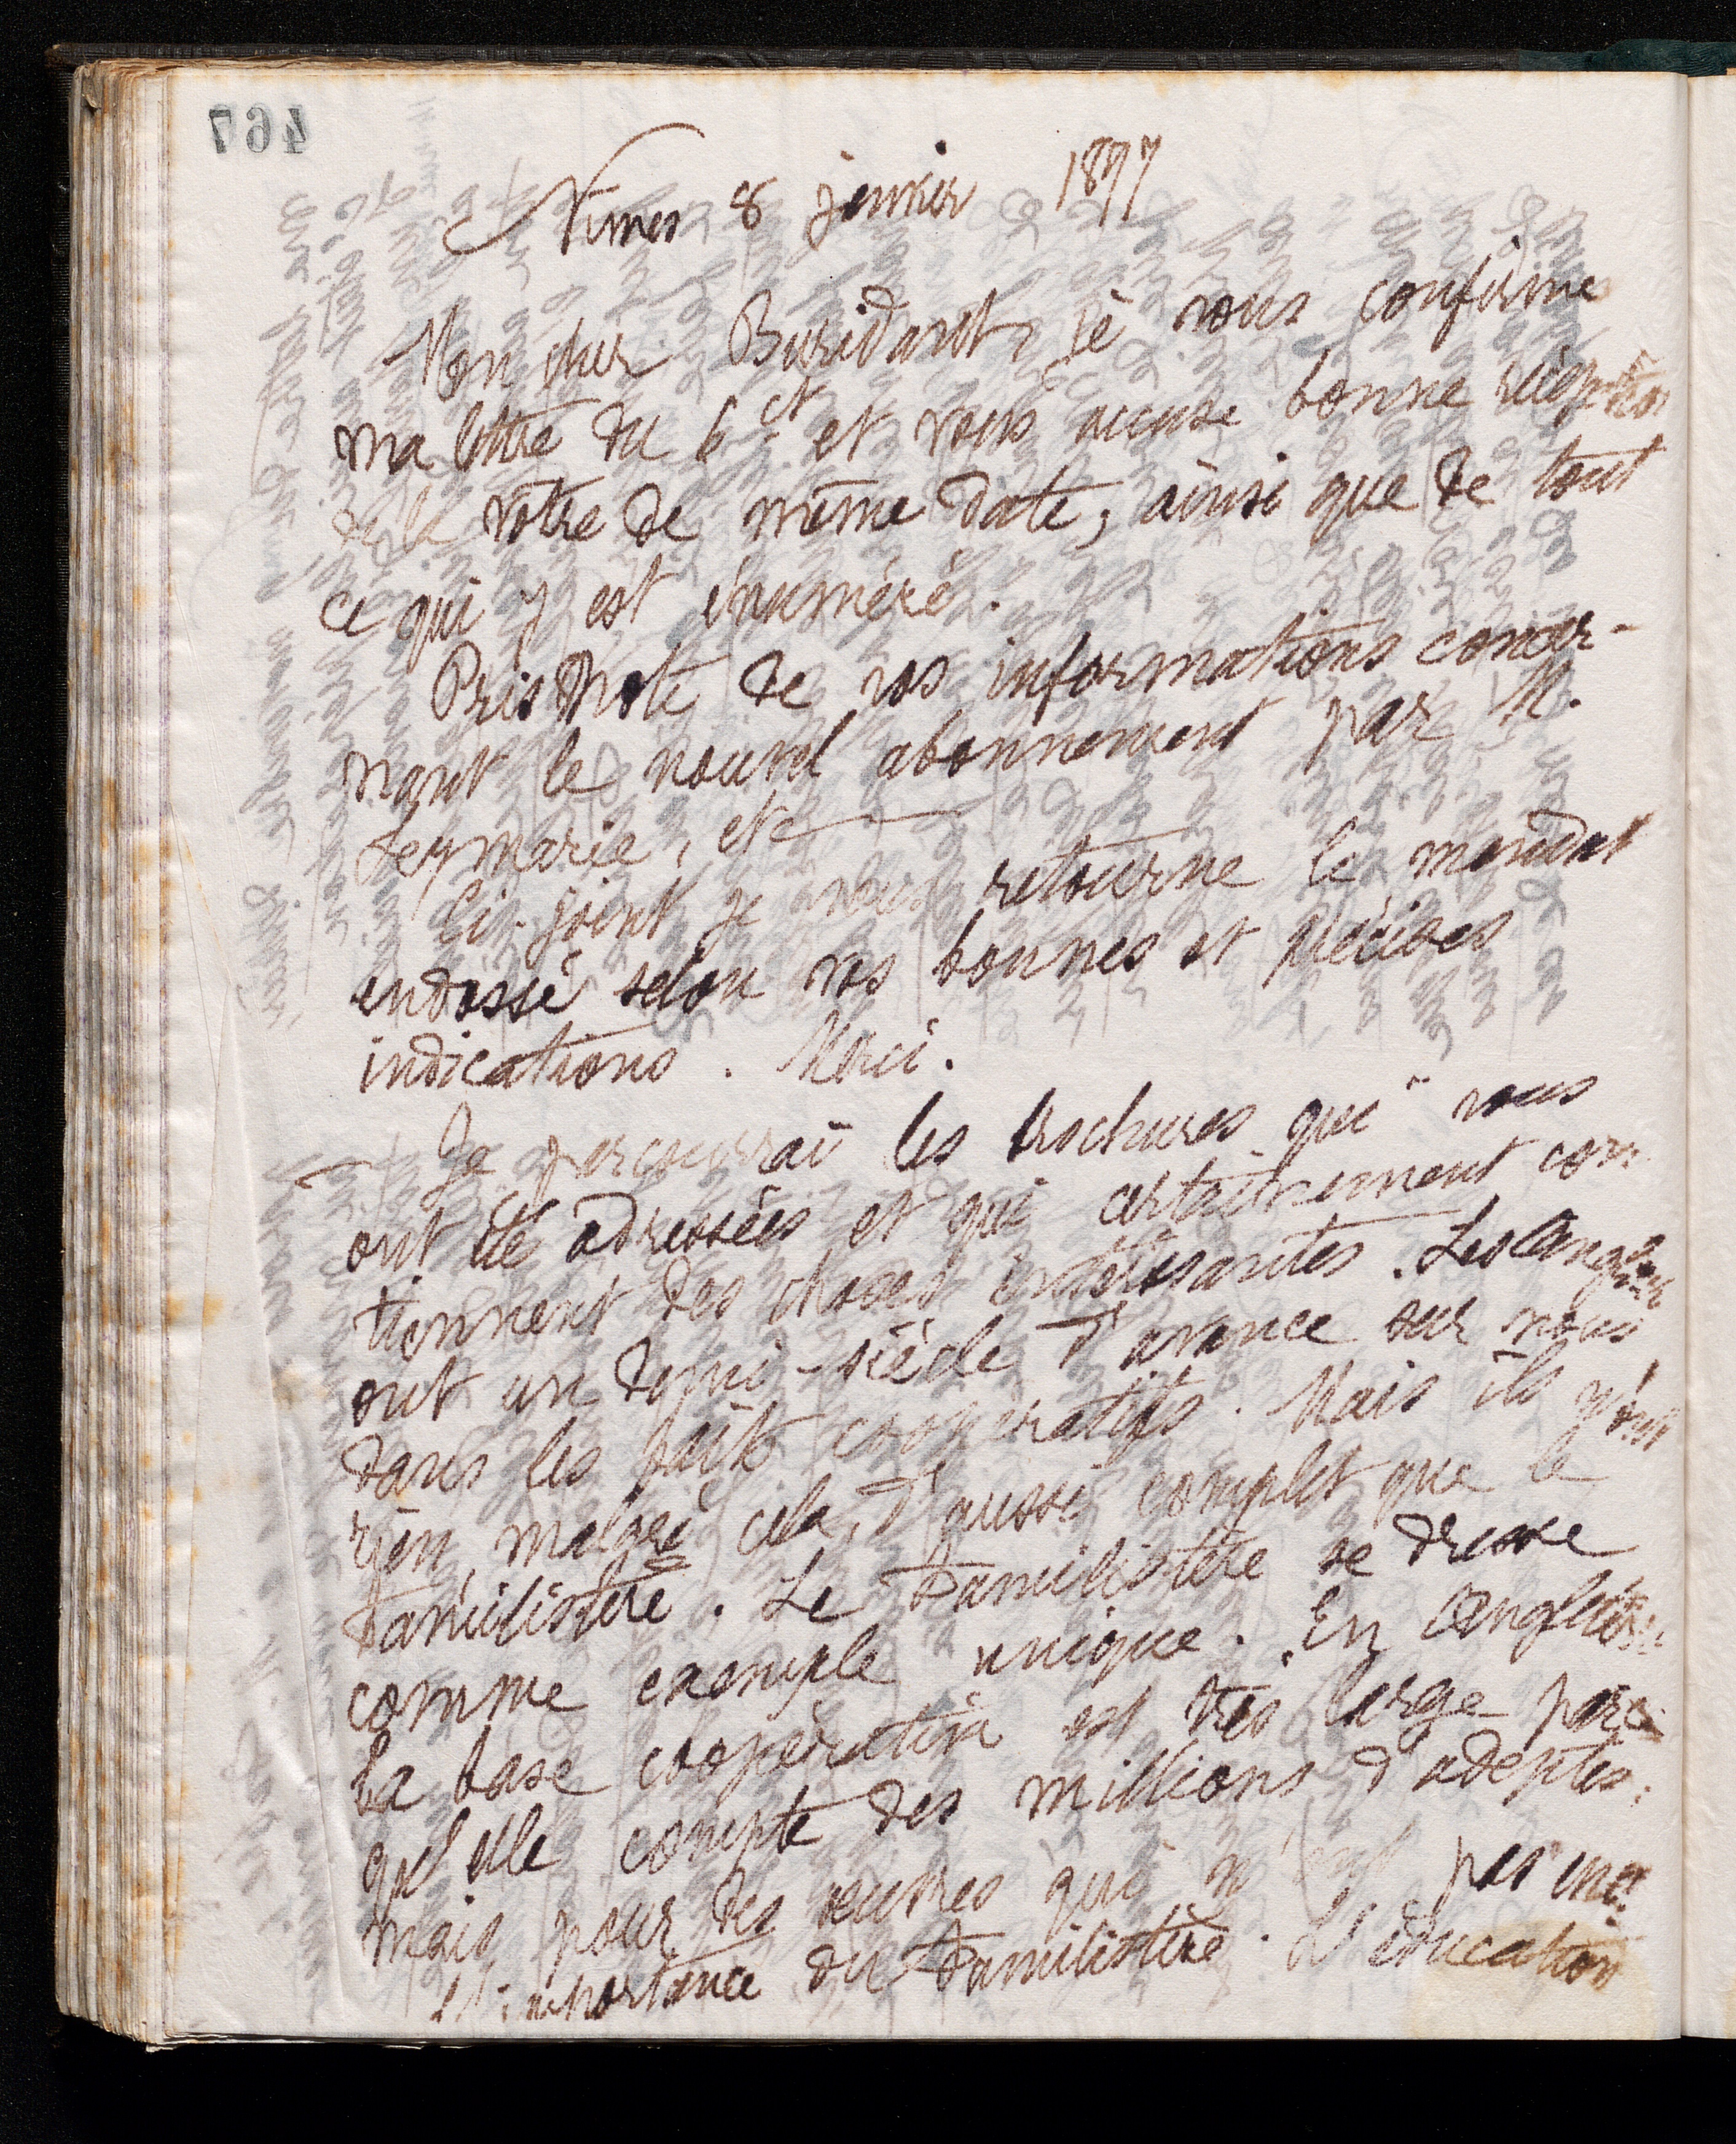 467
Nimes 8 janvier 1897
Mon cher Buridant, je vous confirme
ma lettre du 6 ct et vous accuse bonne réception
de la votre de même date, ainsi que de tout
ce qui y est énuméré.
Pris note de vos informations concer-
nant le nouvel abonnement par M.
Leymarie, etc
Ci-joint je vous retourne le mandat
endossé selon vos bonnes et précises
indications. Merci.
Je parcourrai les brochures qui vous
ont été adressées et qui certainement con-
tiennent des choses intéressantes. Les Anglais
ont un demi-siècle d'avance sur nous
dans les faits coopératifs. Mais ils n'ont
rien, malgré cela, d'aussi complet que le
Familistère. Le Familistère se dresse
comme exemple unique. En Angleterre
la base coopérative est très large parce
qu'elle compte des millions d'adeptes;
mais pour des œuvres qui n'ont pas
l'importance du Familistère. L'éducation